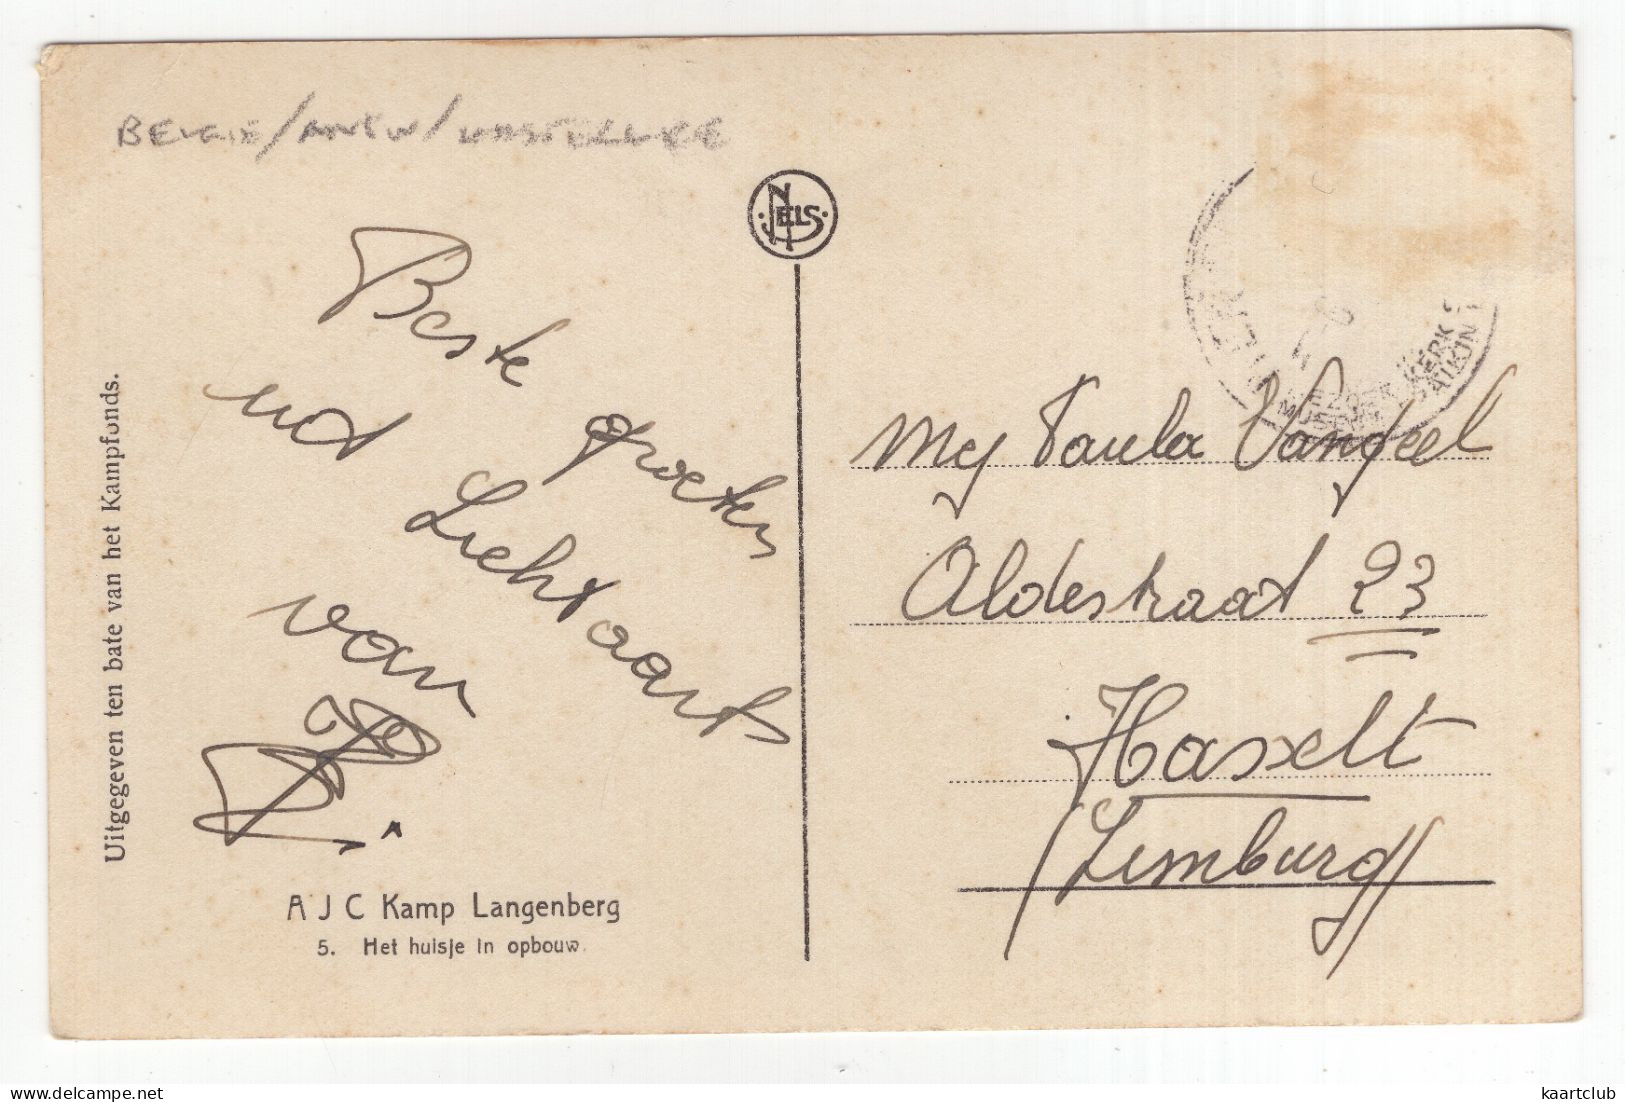 BELGIE/ANTW/
NELS
Beste groeten
uit Lichtaart
van
Uitgegeven ten bate van het Kampfonds.
A J C Kamp Langenberg
5. Het huisje in opbouw.
KERK
Mej Paula Vangeel
Aldestraat 23
Hasselt
(Limburg)
kaartclub